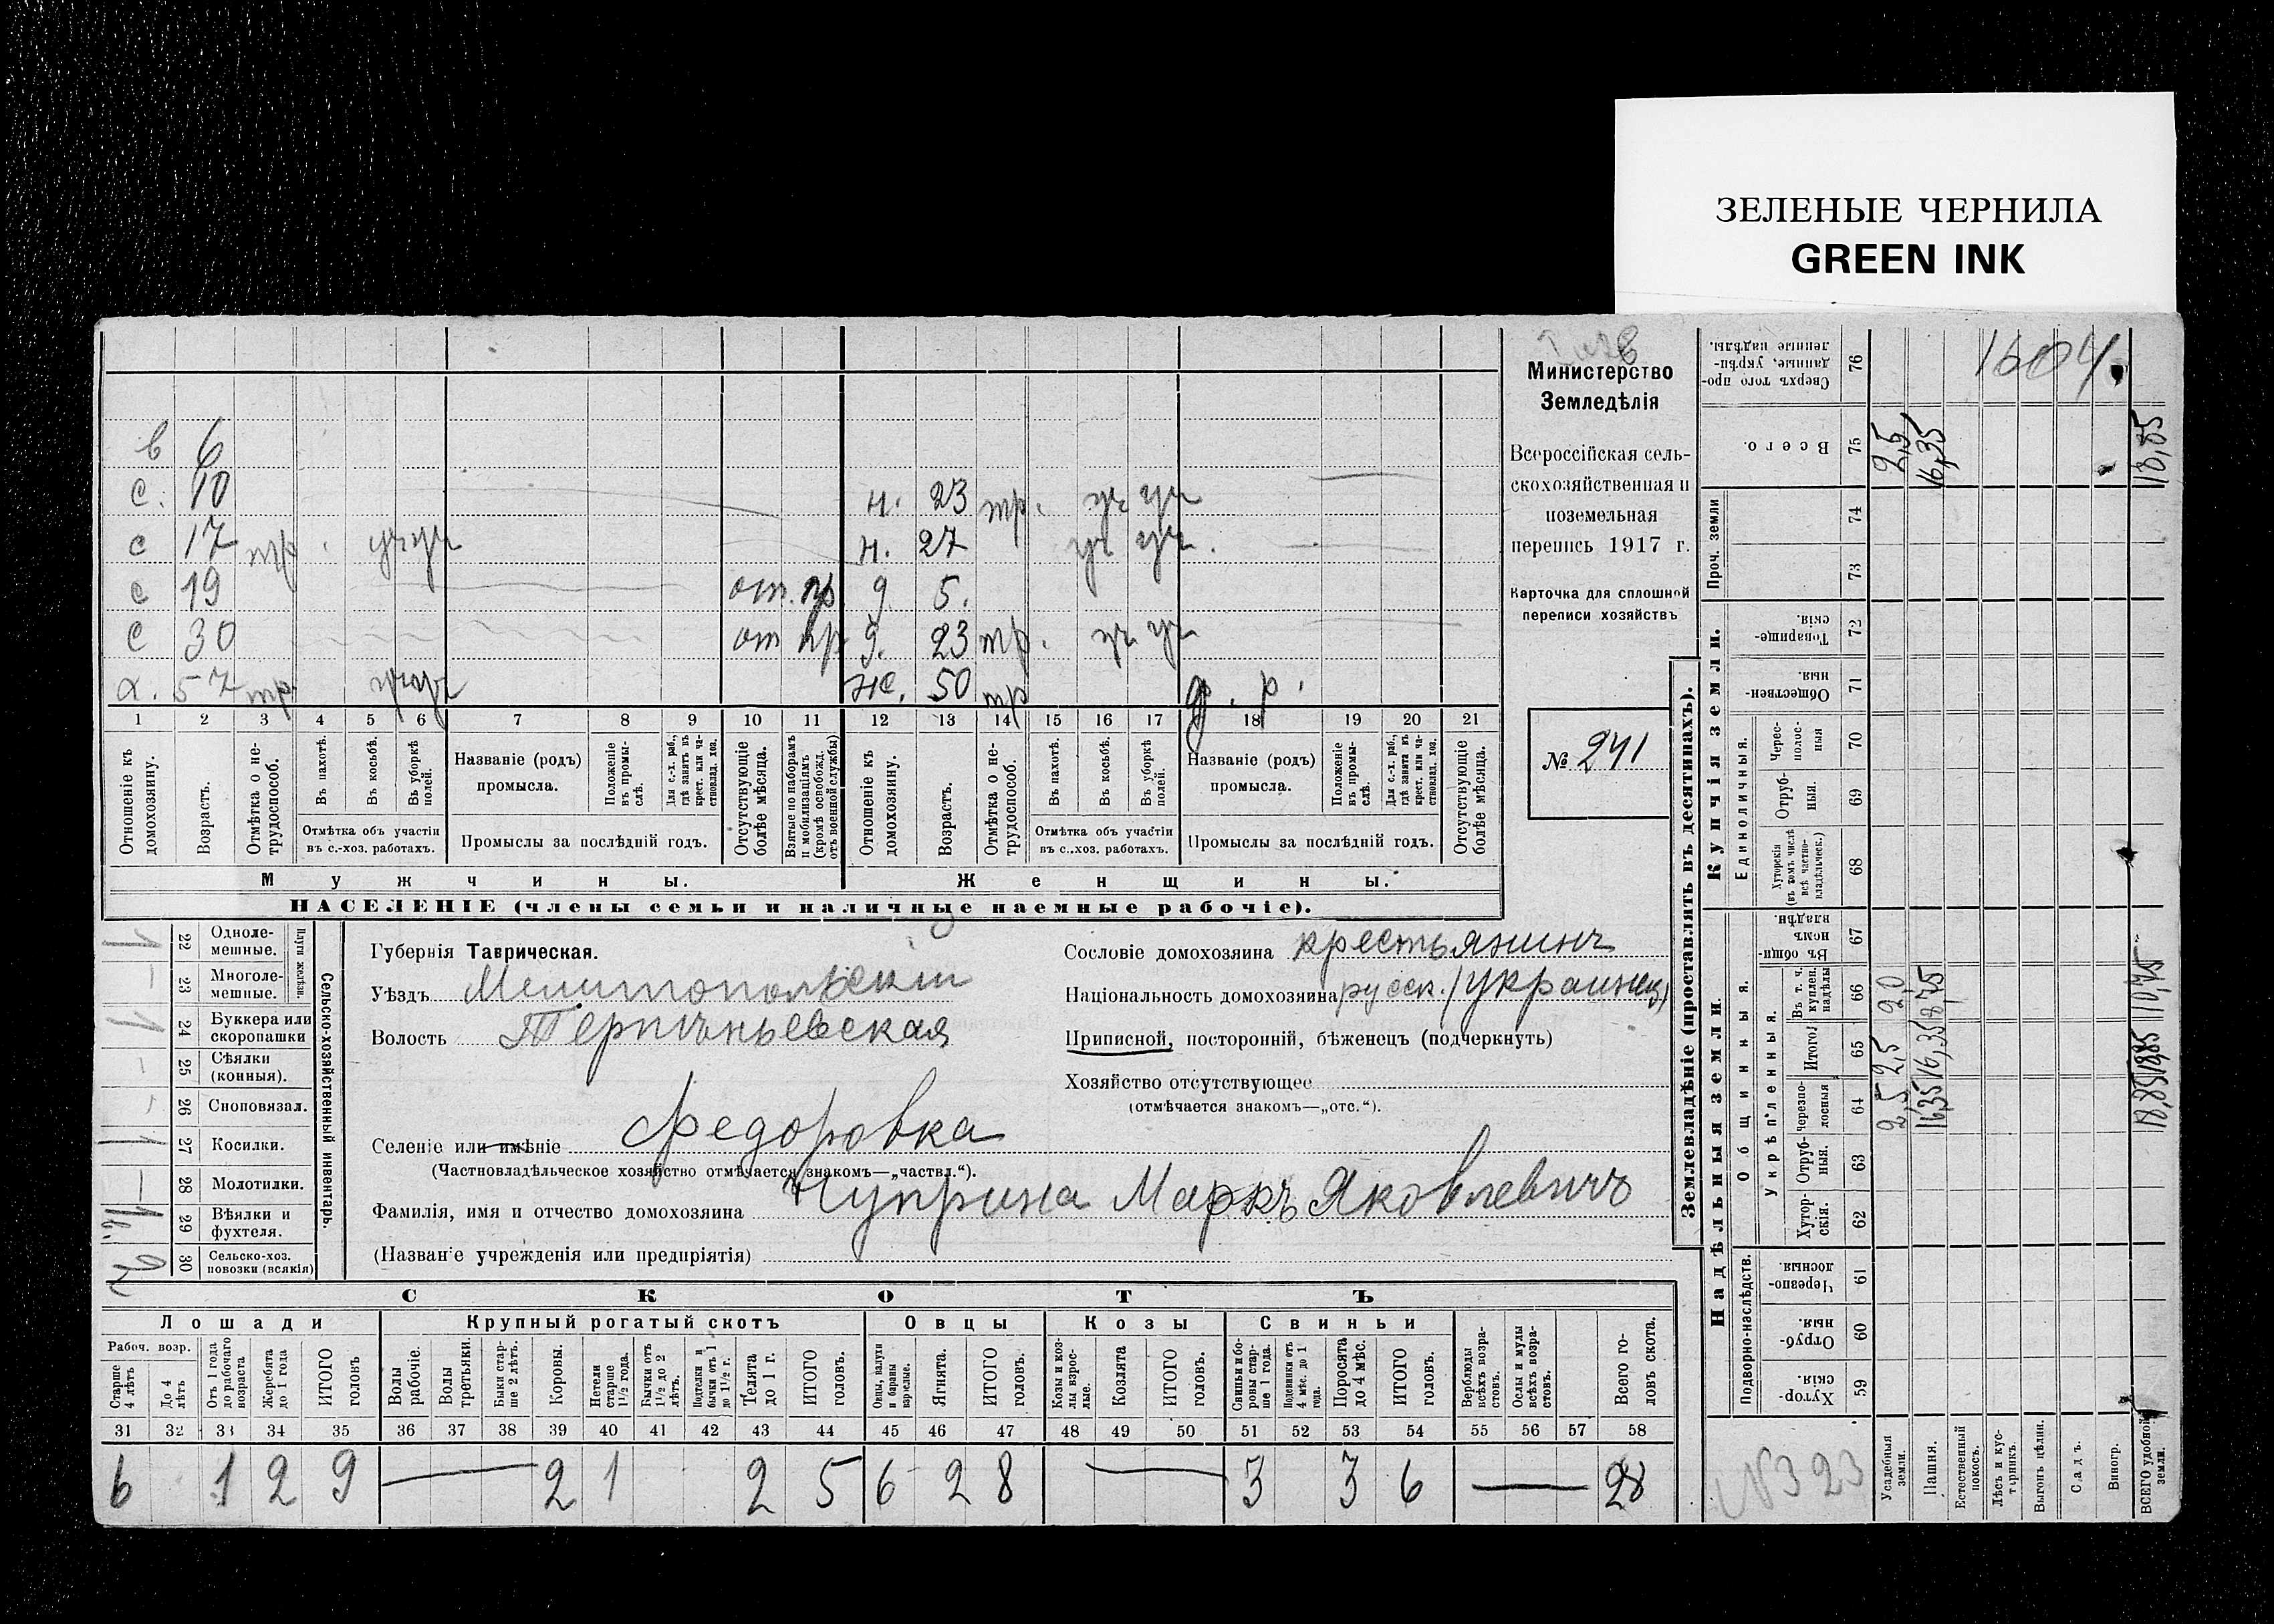 ЗЕЛЕНЫЕ ЧЕРНИЛА
GREEN INK
Министерство
Земледѣлія
Всероссійская сель-
скохозяйственная и
поземельная
перепись 1917 г.
Карточка для сплошной
переписи хозяйствъ
№ 241
в 6
с. 10 н. 23 тр. уч уч
с 17 тр. уч уч н. 27 уч уч.
с 19 от. пр д. 5.
с 30 от пр д. 23 тр. уч уч
х. 57 тр уч уч же. 50 тр д. р.
1 2 3 4 5 6 7 8 9 10 11 12 13 14 15 16 17 18 19 20 21
Отношеніе къ домохозяину.
Возрастъ.
Отмѣтка о не-трудоспособ.
Въ пахотѣ.
Въ косьбѣ.
Въ уборкѣ полей.
Отмѣтка объ участіи
въ с.-хоз. работахъ.
Названіе (родъ)
промысла.
Положеніе въ промы-слѣ.
Для с.-х. раб., гдѣ занятъ въ крест. или ча-стновлад. хоз.
Промыслы за послѣдній годъ.
Отсутствующіе болѣе мѣсяца.
Взятые по наборамъ и мобилизаціямъ (кромѣ освобожд. отъ военной службы)
Отношеніе къ домохозяину.
Возрастъ.
Отмѣтка о не-трудоспособ.
Въ пахотѣ.
Въ косьбѣ.
Въ уборкѣ полей.
Отмѣтка объ участіи
въ с.-хоз. работахъ.
Названіе (родъ)
промысла.
Положеніе въ промы-слѣ.
Для с.-х. раб., гдѣ занята въ крест. или ча-стновлад. хоз.
Промыслы за послѣдній годъ.
Отсутствующіе болѣе мѣсяца.
Мужчины. Женщины.
НАСЕЛЕНІЕ (члены семьи и наличные наемные рабочіе).
Сельско-хозяйственный инвентарь.
Плуги желѣзн.
22 Однолемешные. 1
23 Многолемешные. —
24 Буккера или скоропашки 1
25 Сѣялки (конныя). —
26 Сноповязал.
27 Косилки. 1
28 Молотилки. —
29 Вѣялки и фухтеля. 1
30 Сельско-хоз. повозки (всякія) 2
Губернія Таврическая.
Уѣздъ Мелитопольскій
Волость Терпѣньевская
Селеніе или имѣніе Федоровка
(Частновладѣльческое хозяйство отмѣчается знакомъ—„частвл.“).
Фамилія, имя и отчество домохозяина Чуприна Маркъ Яковлевичъ
(Названіе учрежденія или предпріятія)
Сословіе домохозяина крестьянинъ
Національность домохозяина русск. (украинец)
Приписной, посторонній, бѣженецъ (подчеркнуть)
Хозяйство отсутствующее
(отмѣчается знакомъ—„отс.“).
СКОТЪ
Лошади Крупный рогатый скотъ Овцы Козы Свиньи
Рабоч. возр.
Старше 4 лѣтъ
До 4 лѣтъ
Отъ 1 года до рабочаго возраста
Жеребята до 1 года
ИТОГО головъ
Волы рабочіе.
Волы третьяки.
Быки стар-ше 2 лѣтъ.
Коровы.
Нетели старше 1½ года.
Бычки отъ 1½ до 2 лѣтъ.
Подтелки и бычки отъ 1 до 1½ г.
Телята до 1 г.
ИТОГО головъ.
Овцы, валухи и бараны взрослые.
Ягнята.
ИТОГО головъ.
Козы и коз-лы взрос-лые.
Козлята
ИТОГО головъ.
Свиньи и бо-ровы стар-ше 1 года.
Подсвинки отъ 4 мѣс. до 1 года.
Поросята до 4 мѣс.
ИТОГО головъ.
Верблюды всѣхъ возра-стовъ.
Ослы и мулы всѣхъ возра-стовъ.
Всего го-ловъ скота.
31 32 33 34 35 36 37 38 39 40 41 42 43 44 45 46 47 48 49 50 51 52 53 54 55 56 57 58
6 1 2 9 — 2 1 2 5 6 2 8 — 3 3 6 — 28
Землевладѣніе (проставлять въ десятинахъ).
Купчія земли.
Надѣльныя земли.
Сверхъ того про-данные, укрѣп-ленные надѣлы. 76
1604
Всего. 75 2,5 16,35 18,85
Проч. земли 74 73
Товарище-скія. 72
Обществен-ныя. 71
Единоличныя.
Черес-полос-ныя 70
Отруб-ныя. 69
Хуторскія (въ томъ числѣ всѣ частно-владѣльческ.) 68
Общинныя.
Въ общин-номъ владѣн. 67
Укрѣпленныя.
Въ т. ч. куплен. надѣлы 66 2,0 8,75 10,75
Итого 65 2,5 16,35 18,85
Черезпо-лосныя 64 2,5 16,35 18,85
Отруб-ныя. 63
Хутор-скія. 62
Подворно-наслѣдств.
Черезпо-лосныя. 61
Отруб-ныя. 60
Хутор-скія. 59
№323
Усадебныя земли.
Пашня.
Естественный покосъ.
Лѣсъ и кус-тарникъ.
Выгонъ цѣлин.
Садъ.
Виногр.
ВСЕГО удобной земли.